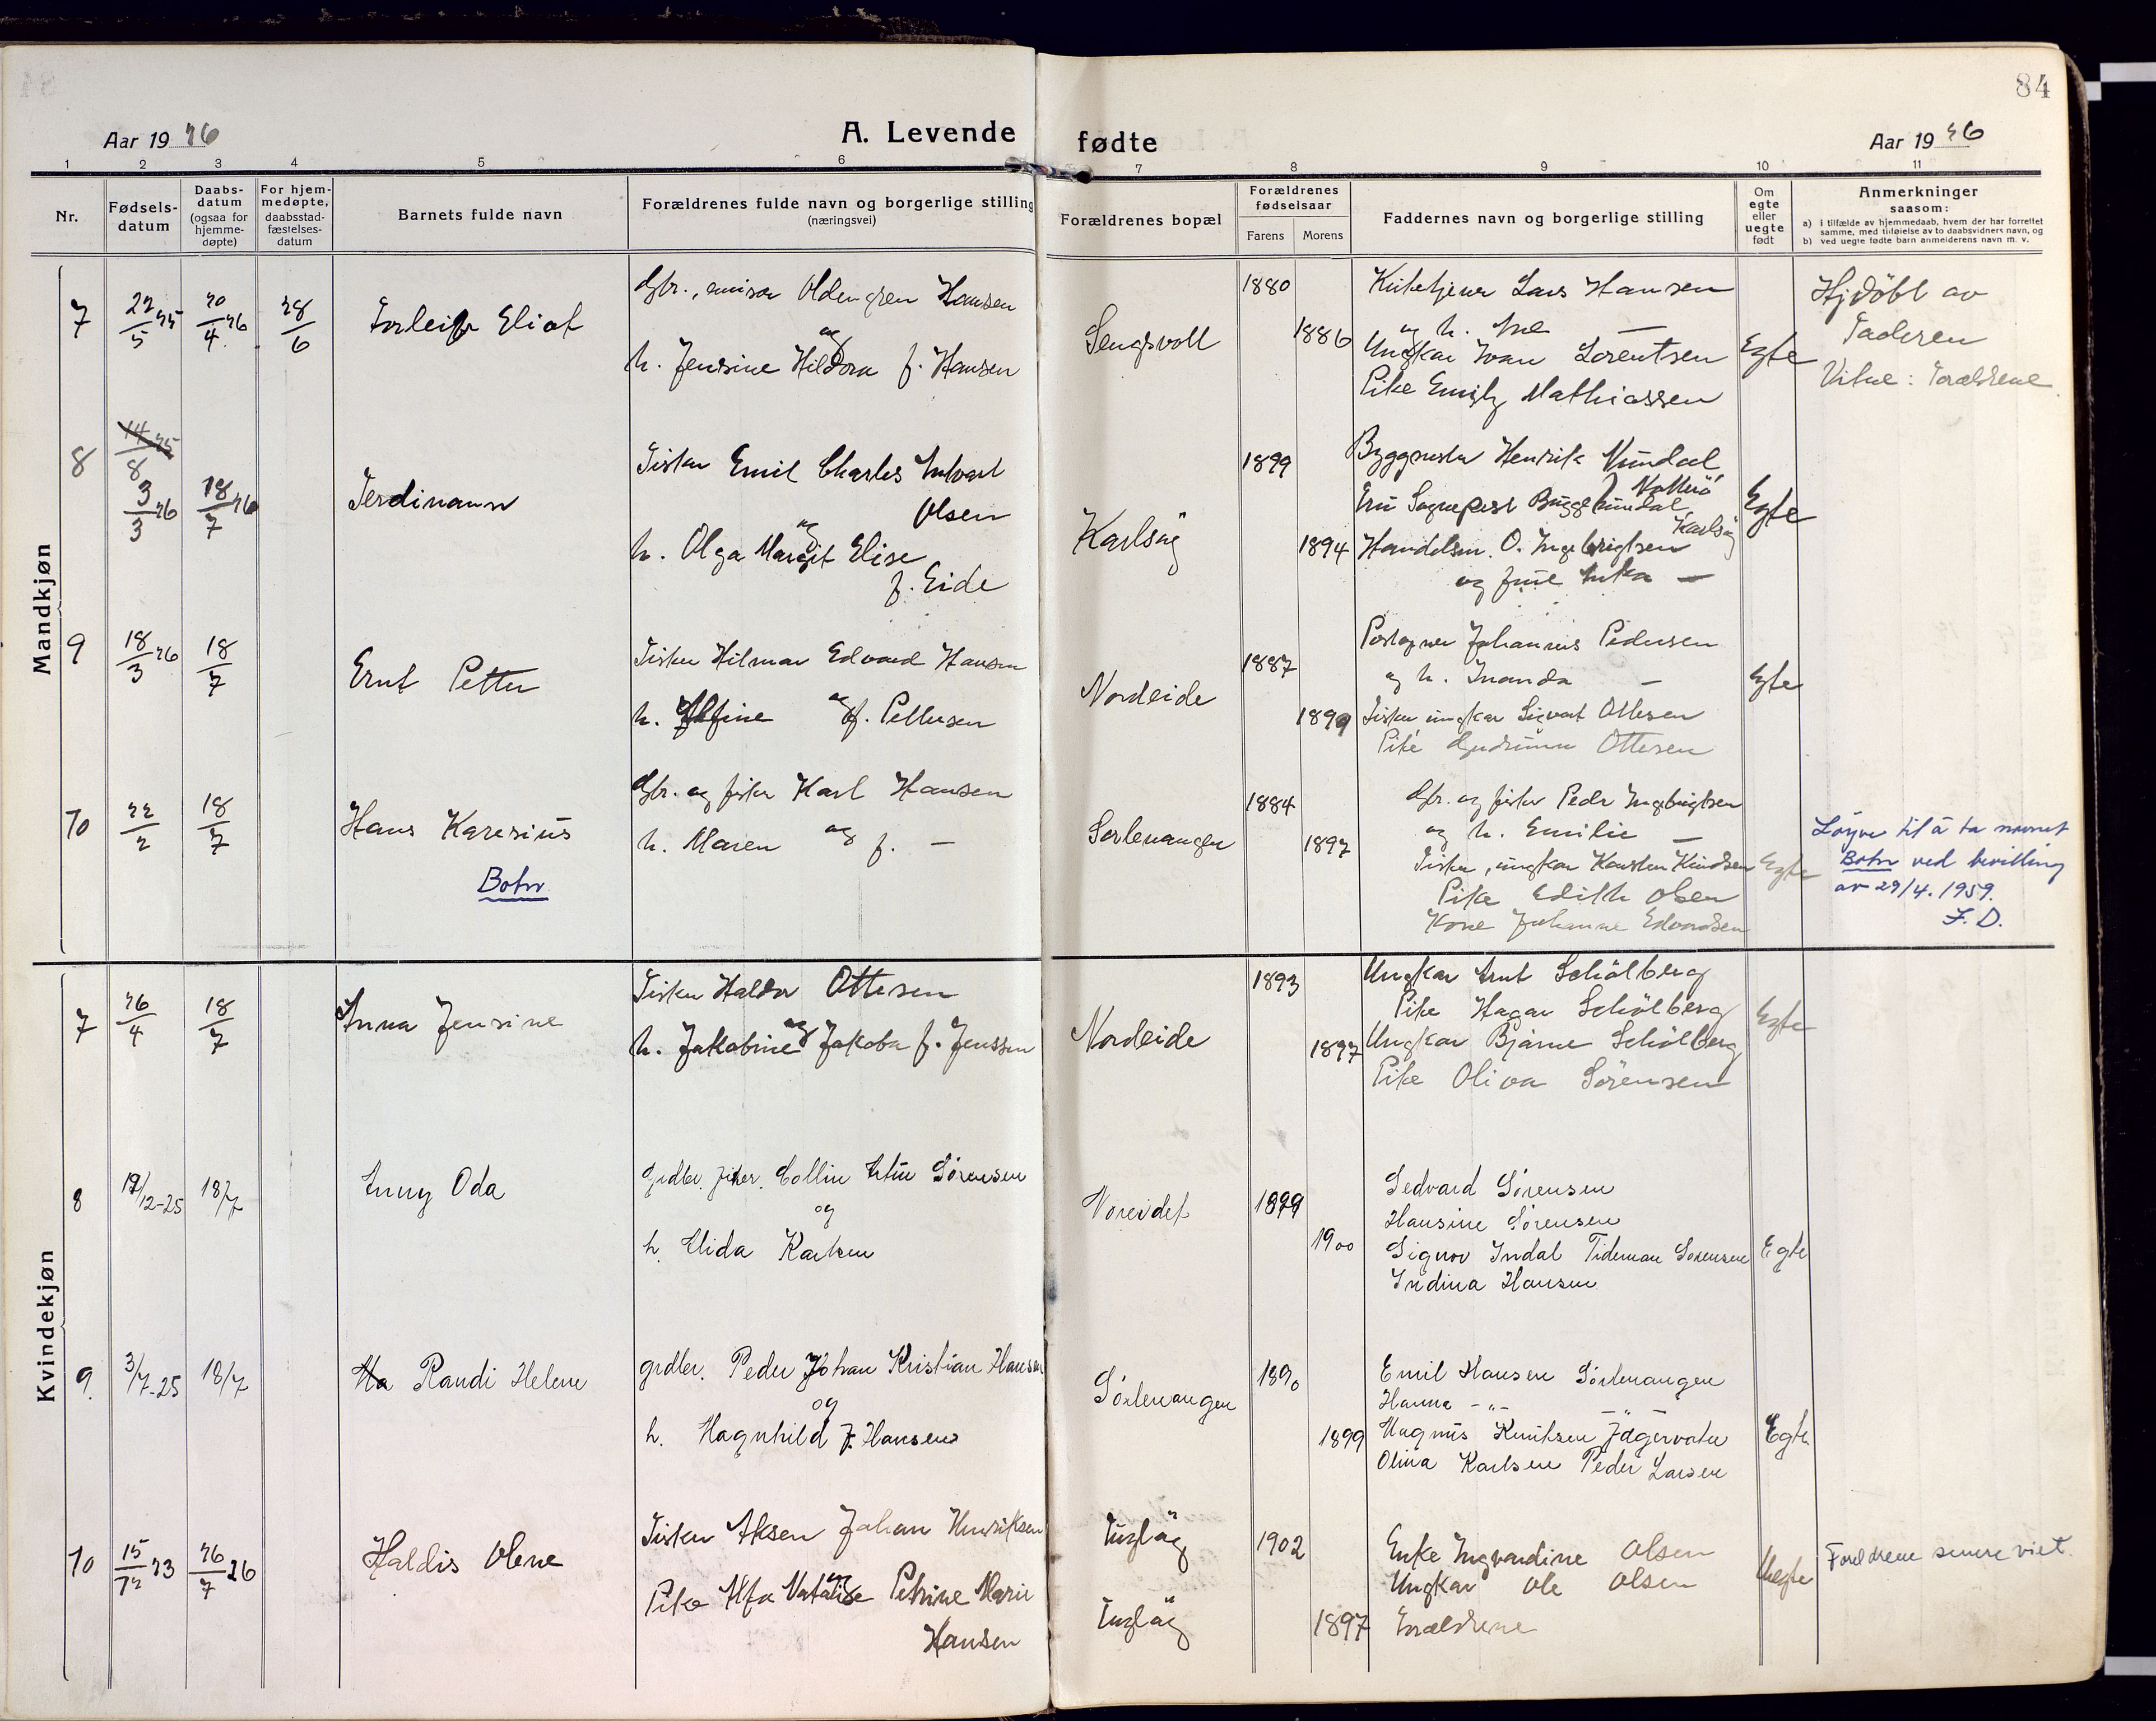 84
Aar 19 26
A. Levende
fødte
Aar 19 26
1 2 3 4 5 6 7 8 9 10 11
Nr.
Fødsels-
datum
Daabs-
datum
(ogsaa for
hjemme-
døpte)
For hjem-
medøpte,
daabsstad-
fæstelses-
datum
Barnets fulde navn
Forældrenes fulde navn og borgerlige stilling
(næringsvei)
Forældrenes bopæl
Forældrenes
fødselsaar
Farens Morens
Faddernes navn og borgerlige stilling
Om
egte
eller
uegte
født
Anmerkninger
saasom:
a) i tilfælde av hjemmedaab, hvem der har forrettet
samme, med tilføielse av to daabsvidners navn, og
b) ved uegte fødte barn anmelderens navn m. v.
Mandkjøn
7
22/5 25
20/4 26
28/6
Torleif Eliot
Gbr., Hansen
og
h. Jensine Hildora f. Hansen
Lengsvoll
1880
1886
Kirketjener Lars Hansen
og h. —
Ungkar Ivan Lorentsen
Pike Emily Mathiassen
Egte
Hjdöbt av
Faderen
Vitne: Forældrene
8
14/8 25
3/3 26
18/7 26
Ferdinann
Fisker Emil Charles
Olsen
og
h. Olga Margit Elise
f. Eide
Karlsöy
1899
1894
Henrik Nundal
Fru Sogneprest Bugge Nundal
Karlsöy
Handelsm. O. Ingebrigtsen
og —
Egte
9
18/3 26
18/7
Ernt Petter
Fisker Hilmar Edvard Hansen
og
h. Alfine f. Pettersen
Nordeide
1887
1899
Johannes Pedersen
og h. —
Fisker ungkar Sigvart Ottesen
Pike Gudrunn Ottesen
Egte
10
22/2
18/7
Hans Karesius
Botnr
Gbr. og fisker Karl Hansen
og
h. Maren f. —
Sørlenangen
1884
1897
Gbr. og fisker Peder Ingebrigtsen
og h. Emilie —
Fisker, ungkar Karsten Knudsen
Pike Edith Olsen
Kone Johanne Edvardsen
Egte
Löyve til å ta navnet
Botnr ved bevilling
av 29/4. 1959.
F. D.
Kvindekjøn
7
26/4
18/7
Anna Jensine
Fisker Haldor Ottesen
og
h. Jakobine Jakoba f. Jenssen
Nordeide
1893
1897
Ungkar Arnt Schölberg
Pike Hagar Schölberg
Ungkar Bjarne Schölberg
Pike Oliva Sörensen
Egte
8
19/12-25
18/7
Anny Oda
grdbr. fisker. Collin Sörensen
og
h. Elida Karlsen
Noreidet
1899
1900
Sedvard Sörensen
Hansine Sörensen
Signor Indal Tideman Sörensen
Indina Hansen
Egte
9
3/7-25
18/7
Ha Randi Helene
grdbr. Peder Johan Kristian Hansen
og
h. Hagnhild f. Hansen
Sörlenangen
1890
1899
Emil Hansen Sörlenangen
Hanna -"- -"-
Magnus Knutsen Jägervatn
Olina Karlsen Peder Larsen
Egte
10
15/12 23
26/7 26
Haldis Olene
Fisker Aksen Johan Henriksen
og
Pike Alfa Natalise Petrine Marie
Hansen
1902
1897
Enke Ingvardine Olsen
Ungkar Ole Olsen
Forældrene
Uegte
Foreldrene senere viet